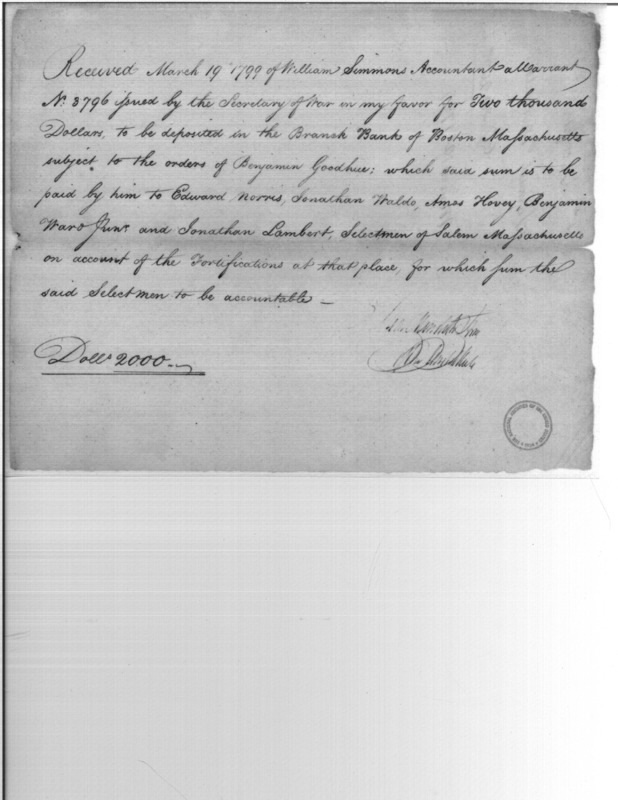 Received March 19th 1799 of William Simmons Accountant a Warrant
No. 3796 issued by the Secretary of War in my favor for Two thousand
Dollars, to be deposited in the Branch Bank of Boston Massachusetts
subject to the orders of Benjamin Goodhue: which said sum is to be
paid by him to Edward Norris, Jonathan Waldo, Amos Hovey, Benjamin
Ward Junr. and Jonathan Lambert, Selectmen of Salem Massachusetts
on account of the Fortifications at that place, for which sum the
said Selectmen to be accountable —
Dolls 2000.